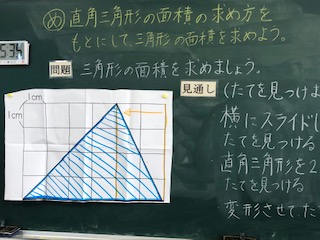 め 直角三角形の面積の求め方を
もとにして、三角形の面積を求めよう。
534
問題 三角形の面積を求めましょう。
見通し
(たてを見つけよ
横にスライドし
たてを見つける
直角三角形を2
たてを見つける
変形させてた
1cm
1cm